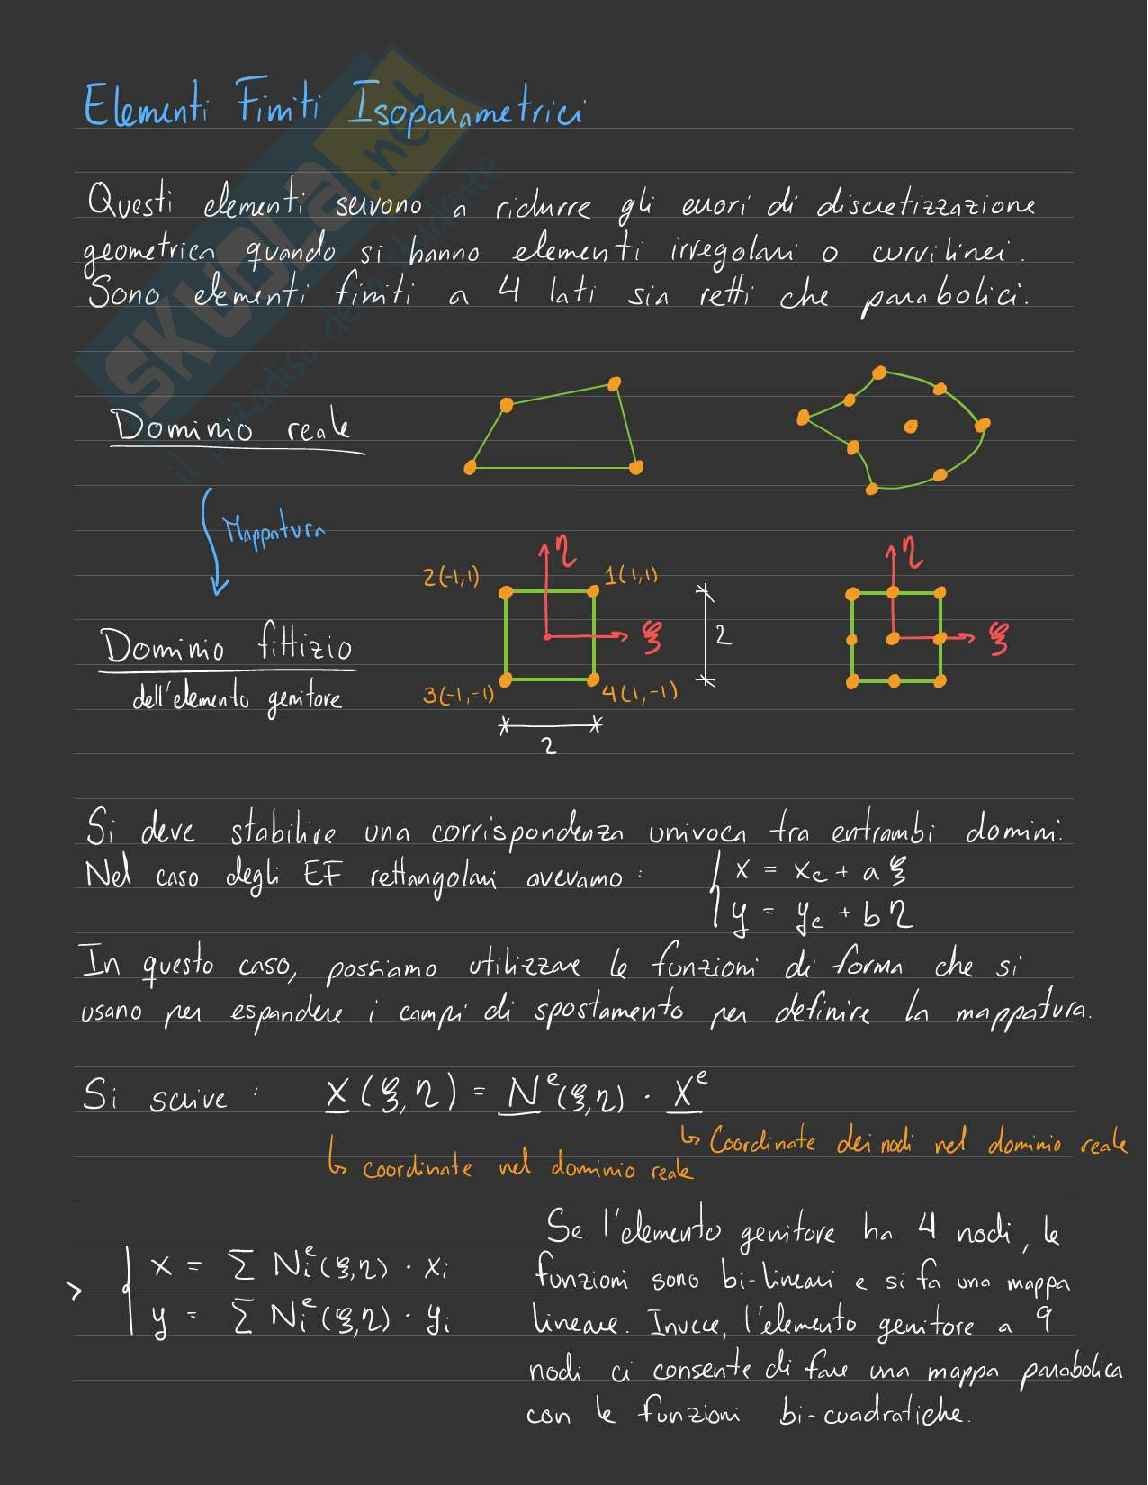 Elementi Finiti Isoparametrici
SKUOLA.net
Questi elementi servono a ridurre gli errori di discretizzazione
geometrica quando si hanno elementi irregolari o curvilinei.
Sono elementi finiti a 4 lati sia retti che parabolici.
Dominio reale
Mappatura
η
η
2(-1,1)
1(1,1)
ξ
2
ξ
Dominio fittizio
dell'elemento genitore
3(-1,-1)
4(1,-1)
2
Si deve stabilire una corrispondenza univoca tra entrambi domini.
Nel caso degli EF rettangolari avevamo: { x = xc + a ξ
y = yc + b η
In questo caso, possiamo utilizzare le funzioni di forma che si
usano per espandere i campi di spostamento per definire la mappatura.
Si scrive: x(ξ,η) = Nᵉ(ξ,η) · Xᵉ
↳ Coordinate dei nodi nel dominio reale
↳ coordinate nel dominio reale
> { x = Σ Nᵢᵉ(ξ,η) · xᵢ
y = Σ Nᵢᵉ(ξ,η) · yᵢ
Se l'elemento genitore ha 4 nodi, le
funzioni sono bi-lineari e si fa una mappa
lineare. Invece, l'elemento genitore a 9
nodi ci consente di fare una mappa parabolica
con le funzioni bi-cuadratiche.